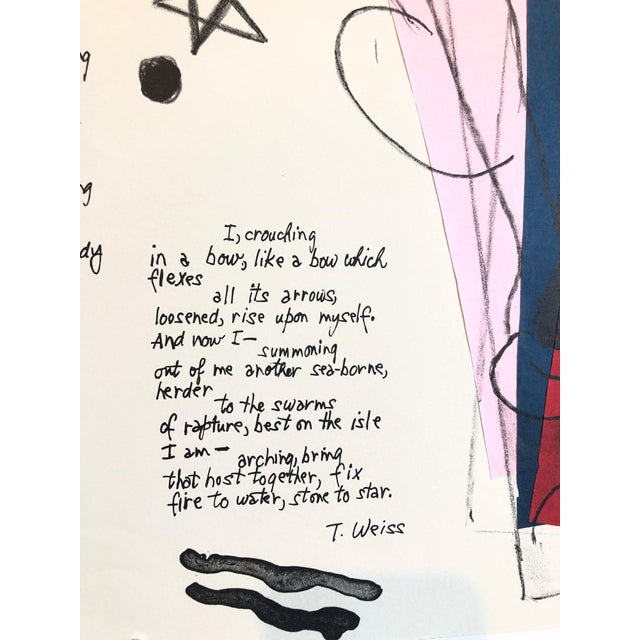 g
g
dy
I, crouching
in a bow, like a bow which
flexes
all its arrows,
loosened, rise upon myself.
And now I—
summoning
out of me another sea-borne,
herder
to the swarms
of rapture, best on the isle
I am—
arching, bring
that host together, fix
fire to water, stone to star.
T. Weiss